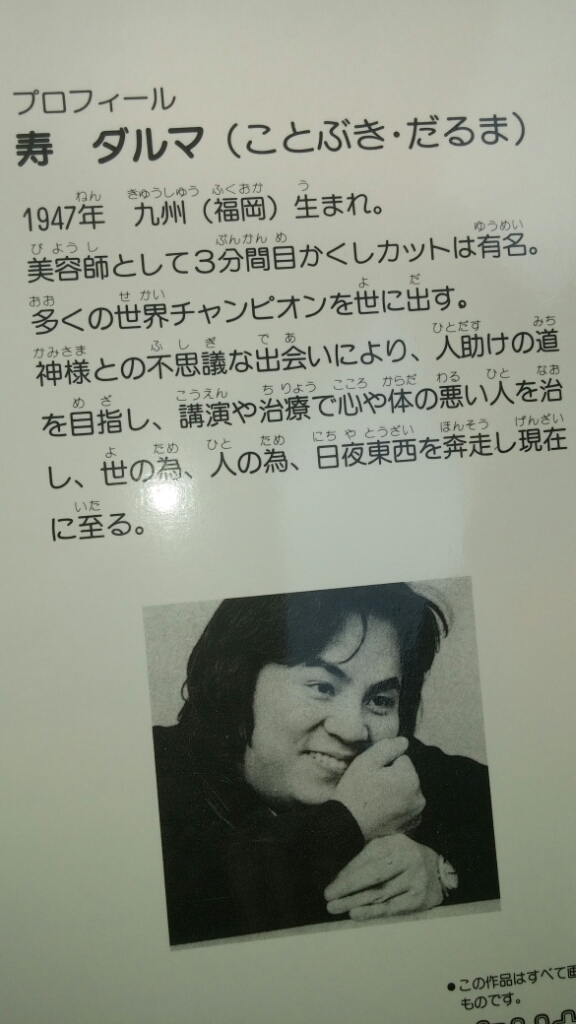 プロフィール
寿　ダルマ（ことぶき・だるま）
1947年　九州（福岡）生まれ。
美容師として3分間目かくしカットは有名。
多くの世界チャンピオンを世に出す。
神様との不思議な出会いにより、人助けの道
を目指し、講演や治療で心や体の悪い人を治
し、世の為、人の為、日夜東西を奔走し現在
に至る。
●この作品はすべて
ものです。